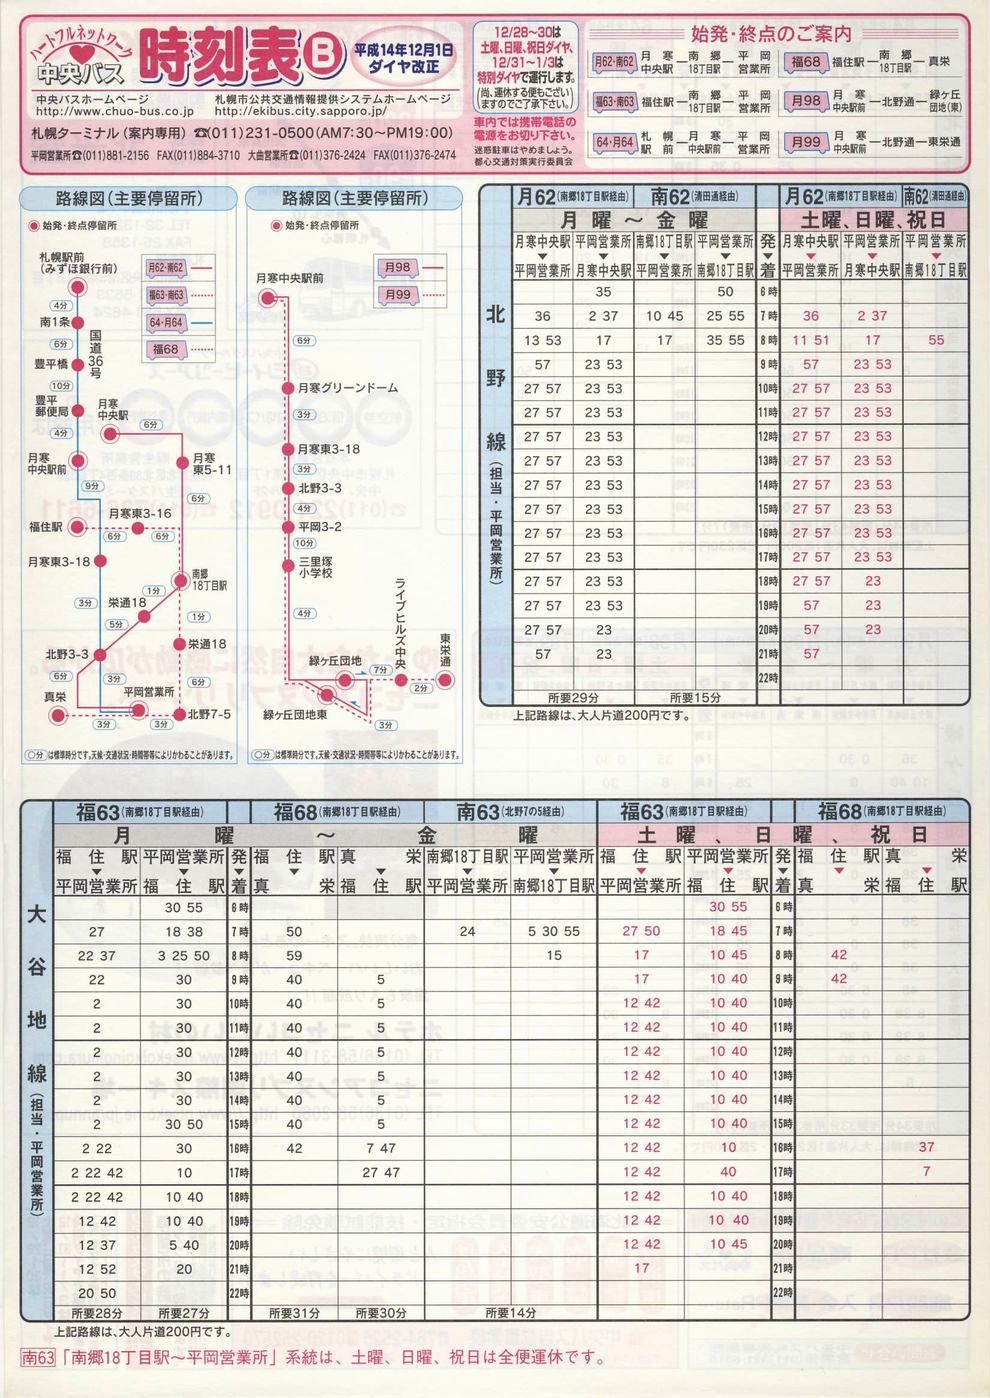 ハートフルネットワーク
中央バス
時刻表B
平成14年12月1日
ダイヤ改正
中央バスホームページ
http://www.chuo-bus.co.jp
札幌市公共交通情報提供システムホームページ
http://ekibus.city.sapporo.jp/
札幌ターミナル(案内専用) ☎(011)231-0500(AM7:30～PM19:00)
平岡営業所☎(011)881-2156 FAX(011)884-3710 大曲営業所☎(011)376-2424 FAX(011)376-2474
12/28～30は
土曜、日曜、祝日ダイヤ、
12/31～1/3は
特別ダイヤで運行します。
(尚、運休する便もござい
ますのでご了承下さい。)
車内では携帯電話の
電源をお切り下さい。
迷惑駐車はやめましょう。
都心交通対策実行委員会
始発・終点のご案内
月62・南62 月寒中央駅―南郷18丁目駅―平岡営業所
福68 福住駅―南郷18丁目駅―真栄
福63・南63 福住駅―南郷18丁目駅―平岡営業所
月98 月寒中央駅前―北野通―緑ヶ丘団地(東)
64・月64 札幌駅前―月寒中央駅前―平岡営業所
月99 月寒中央駅前―北野通―東栄通
路線図(主要停留所)
始発・終点停留所
札幌駅前
(みずほ銀行前)
月62・南62
福63・南63
64・月64
福68
4分
南1条
6分
国道36号
豊平橋
10分
豊平郵便局
4分
月寒中央駅
6分
月寒中央駅前
月寒東5-11
9分
6分
月寒東3-16
福住駅
6分
6分
月寒東3-18
南郷18丁目駅
1分
3分
栄通18
5分
1分
栄通18
北野3-3
6分
3分
6分
真栄
平岡営業所
北野7-5
3分
3分
○分は標準時分です。天候・交通状況・時間帯等によりかわることがあります。
路線図(主要停留所)
始発・終点停留所
月寒中央駅前
月98
月99
6分
月寒グリーンドーム
3分
月寒東3-18
3分
北野3-3
4分
平岡3-2
10分
三里塚小学校
4分
ライブヒルズ中央
東栄通
緑ヶ丘団地
7分
2分
緑ヶ丘団地東
3分
○分は標準時分です。天候・交通状況・時間帯等によりかわることがあります。
北野線(担当・平岡営業所)
月62(南郷18丁目駅経由) 南62(清田通経由) 月62(南郷18丁目駅経由) 南62(清田通経由)
月曜～金曜 土曜、日曜、祝日
月寒中央駅 平岡営業所 南郷18丁目駅 平岡営業所 発 月寒中央駅 平岡営業所 平岡営業所
▼ ▼ ▼ ▼ ▼ ▼ ▼ ▼
平岡営業所 月寒中央駅 平岡営業所 南郷18丁目駅 着 平岡営業所 月寒中央駅 南郷18丁目駅
35 50 6時
36 2 37 10 45 25 55 7時 36 2 37
13 53 17 17 35 55 8時 11 51 17 55
57 23 53 9時 57 23 53
27 57 23 53 10時 27 57 23 53
27 57 23 53 11時 27 57 23 53
27 57 23 53 12時 27 57 23 53
27 57 23 53 13時 27 57 23 53
27 57 23 53 14時 27 57 23 53
27 57 23 53 15時 27 57 23 53
27 57 23 53 16時 27 57 23 53
27 57 23 53 17時 27 57 23 53
27 57 23 53 18時 27 57 23
27 57 23 53 19時 57 23
27 57 23 20時 57 23
57 23 21時 57
22時
所要29分 所要15分
上記路線は、大人片道200円です。
大谷地線(担当・平岡営業所)
福63(南郷18丁目駅経由) 福68(南郷18丁目駅経由) 南63(北野7の5経由) 福63(南郷18丁目駅経由) 福68(南郷18丁目駅経由)
月曜～金曜 土曜、日曜、祝日
福住駅 平岡営業所 発 福住駅 真栄 南郷18丁目駅 平岡営業所 福住駅 平岡営業所 発 福住駅 真栄
▼ ▼ ▼ ▼ ▼ ▼ ▼ ▼ ▼ ▼ ▼ ▼
平岡営業所 福住駅 着 真栄 福住駅 平岡営業所 南郷18丁目駅 平岡営業所 福住駅 着 真栄 福住駅
30 55 6時 30 55 6時
27 18 38 7時 50 24 5 30 55 27 50 18 45 7時
22 37 3 25 50 8時 59 15 17 10 45 8時 42
22 30 9時 40 5 17 10 40 9時 42
2 30 10時 40 5 12 42 10 40 10時
2 30 11時 40 5 12 42 10 40 11時
2 30 12時 40 5 12 42 10 40 12時
2 30 13時 40 5 12 42 10 40 13時
2 30 14時 40 5 12 42 10 40 14時
2 30 50 15時 40 5 12 42 10 40 15時
2 22 30 16時 42 7 47 12 42 10 16時 37
2 22 42 10 17時 27 47 12 42 40 17時 7
2 22 42 10 40 18時 12 42 10 40 18時
12 42 10 40 19時 12 42 10 40 19時
12 37 5 40 20時 12 42 10 45 20時
12 52 20 21時 17 21時
20 50 22時 22時
所要28分 所要27分 所要31分 所要30分 所要14分
上記路線は、大人片道200円です。
南63「南郷18丁目駅～平岡営業所」系統は、土曜、日曜、祝日は全便運休です。